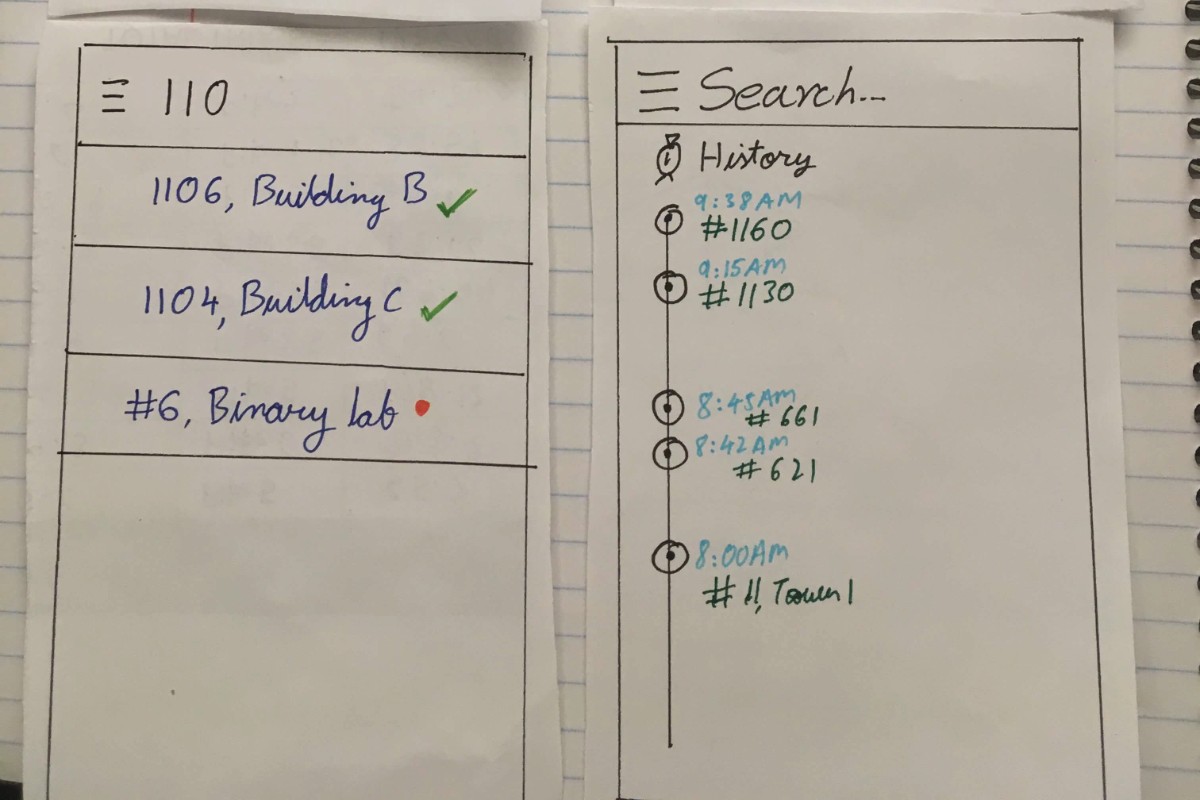 110
1106, Building B
1104, Building C
#6, Binary lab
Search...
History
9:38AM
#1160
9:15AM
#1130
8:45AM
#661
8:42AM
#621
8:00AM
#11, Tower 1